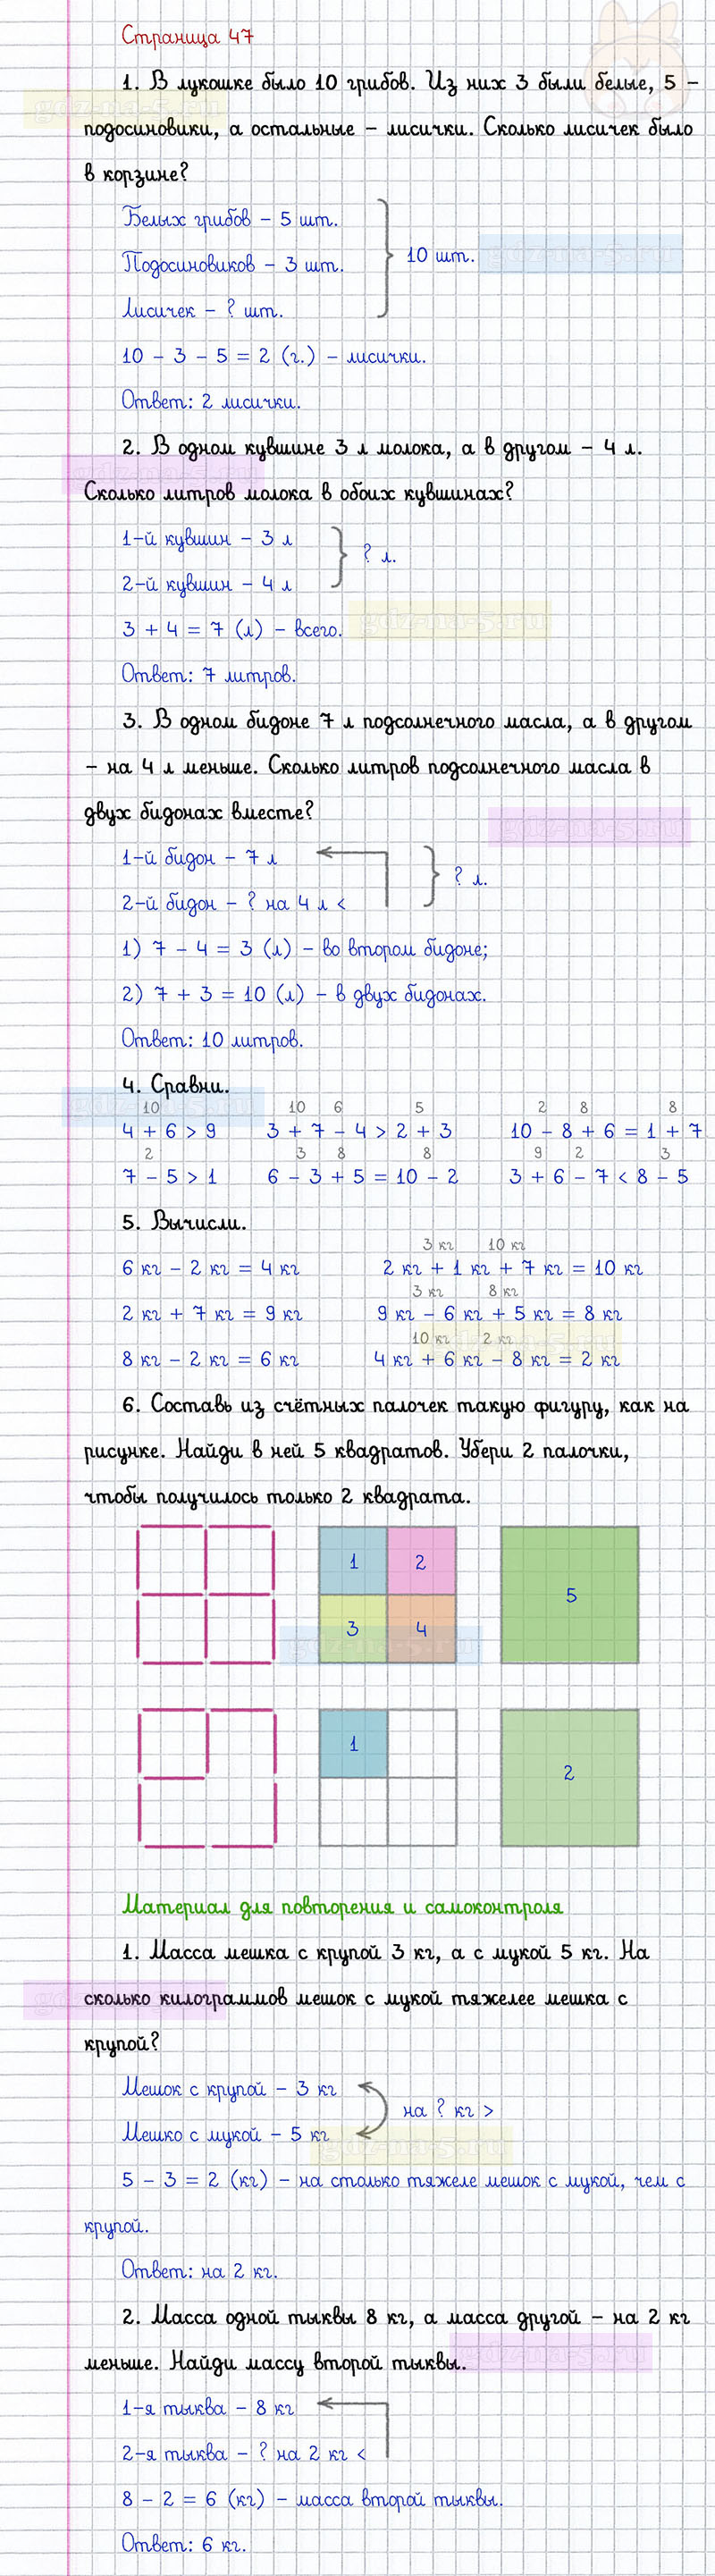 Страница 47
1. В лукошке было 10 грибов. Из них 3 были белые, 5 –
gdz-na-5.ru
подосиновики, а остальные – лисички. Сколько лисичек было
в корзине?
Белых грибов – 5 шт.
Подосиновиков – 3 шт.
10 шт.
gdz-na-5.ru
Лисичек – ? шт.
10 – 3 – 5 = 2 (г.) – лисички.
Ответ: 2 лисички.
2. В одном кувшине 3 л молока, а в другом – 4 л.
gdz-na-5.ru
Сколько литров молока в обоих кувшинах?
1-й кувшин – 3 л
? л.
2-й кувшин – 4 л
3 + 4 = 7 (л) – всего.
gdz-na-5.ru
Ответ: 7 литров.
3. В одном бидоне 7 л подсолнечного масла, а в другом
– на 4 л меньше. Сколько литров подсолнечного масла в
двух бидонах вместе?
gdz-na-5.ru
1-й бидон – 7 л
? л.
2-й бидон – ? на 4 л <
1) 7 – 4 = 3 (л) – во втором бидоне;
2) 7 + 3 = 10 (л) – в двух бидонах.
Ответ: 10 литров.
4. Сравни.
gdz-na-5.ru
10 10 6 5 2 8 8
4 + 6 > 9 3 + 7 – 4 > 2 + 3 10 – 8 + 6 = 1 + 7
2 3 8 8 9 2 3
7 – 5 > 1 6 – 3 + 5 = 10 – 2 3 + 6 – 7 < 8 – 5
5. Вычисли.
3 кг 10 кг
6 кг – 2 кг = 4 кг 2 кг + 1 кг + 7 кг = 10 кг
3 кг 8 кг
2 кг + 7 кг = 9 кг 9 кг – 6 кг + 5 кг = 8 кг
10 кг 2 кг
gdz-na-5.ru
8 кг – 2 кг = 6 кг 4 кг + 6 кг – 8 кг = 2 кг
6. Составь из счётных палочек такую фигуру, как на
рисунке. Найди в ней 5 квадратов. Убери 2 палочки,
чтобы получилось только 2 квадрата.
1 2
5
3 4
gdz-na-5.ru
1
2
Материал для повторения и самоконтроля
1. Масса мешка с крупой 3 кг, а с мукой 5 кг. На
gdz-na-5.ru
сколько килограммов мешок с мукой тяжелее мешка с
крупой?
Мешок с крупой – 3 кг
на ? кг >
Мешко с мукой – 5 кг
gdz-na-5.ru
5 – 3 = 2 (кг) – на столько тяжеле мешок с мукой, чем с
крупой.
Ответ: на 2 кг.
2. Масса одной тыквы 8 кг, а масса другой – на 2 кг
меньше. Найди массу второй тыквы.
gdz-na-5.ru
1-я тыква – 8 кг
2-я тыква – ? на 2 кг <
8 – 2 = 6 (кг) – масса второй тыквы.
Ответ: 6 кг.